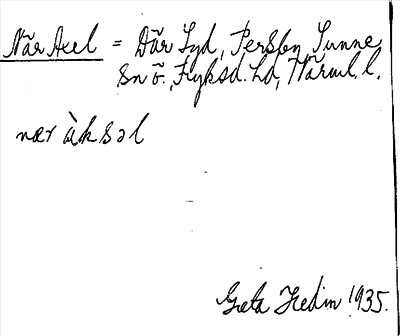 När Axel = Där Syd, Persby, Sunne
sn ö., Fryksd. hd, Värml. l.
nær àksəl
Greta Hedin 1935.